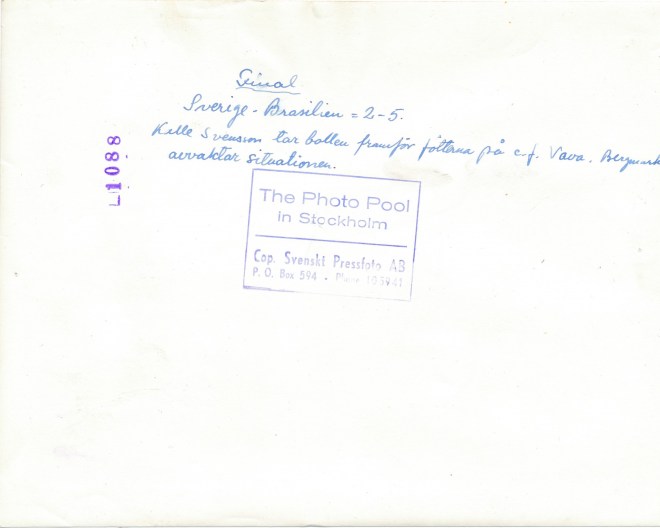 Final
Sverige - Brasilien = 2-5.
Kalle Svensson tar bollen framför fötterna på c.f. Vava. Bergmark
avvaktar situationen.
L1088
The Photo Pool
in Stockholm
Cop. Svenskt Pressfoto AB
P. O. Box 594 - Phone 105941